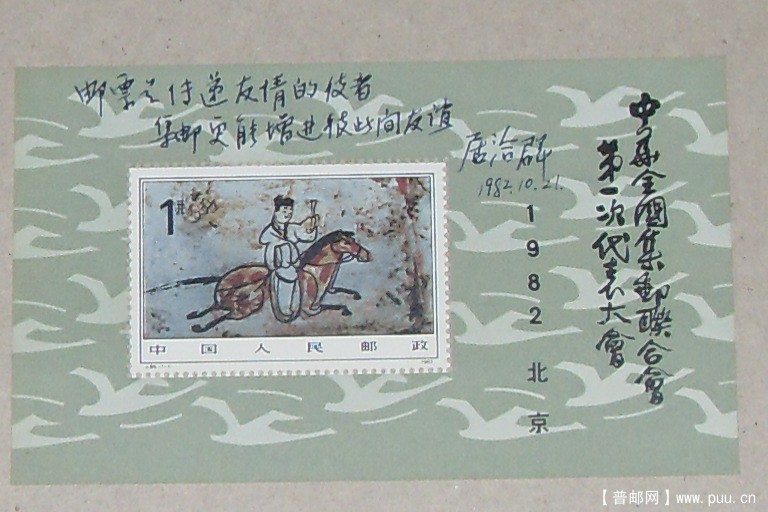 邮票是传递友情的使者
集邮更能增进彼此间友谊
屠洽群
1982.10.21.
中华全國集郵聯合會
第一次代表大會
1982北京
1元
中国人民邮政
【普邮网】www.puu.cn